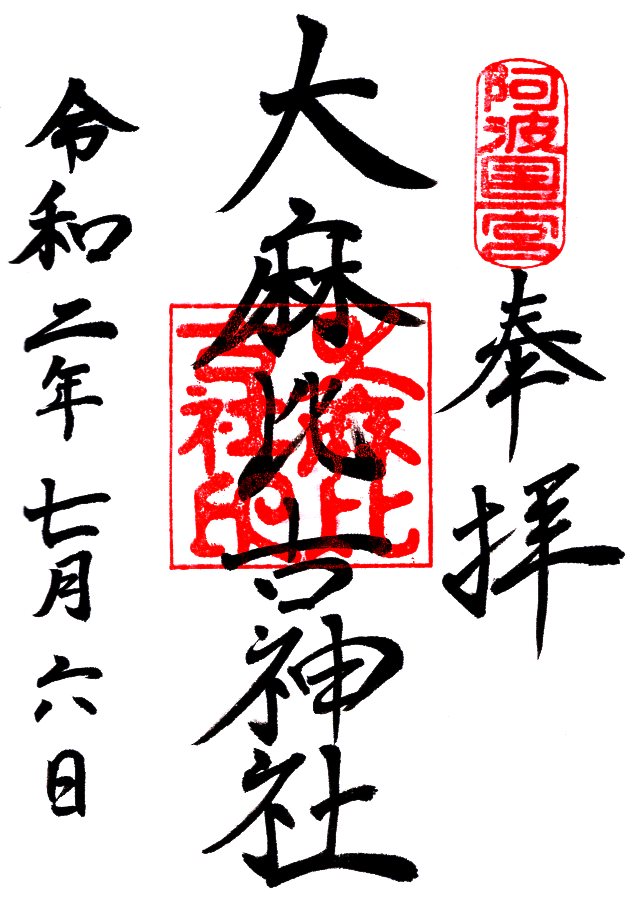 阿波国一宮
奉拝
大麻比古神社
大麻比古社印
令和二年七月六日